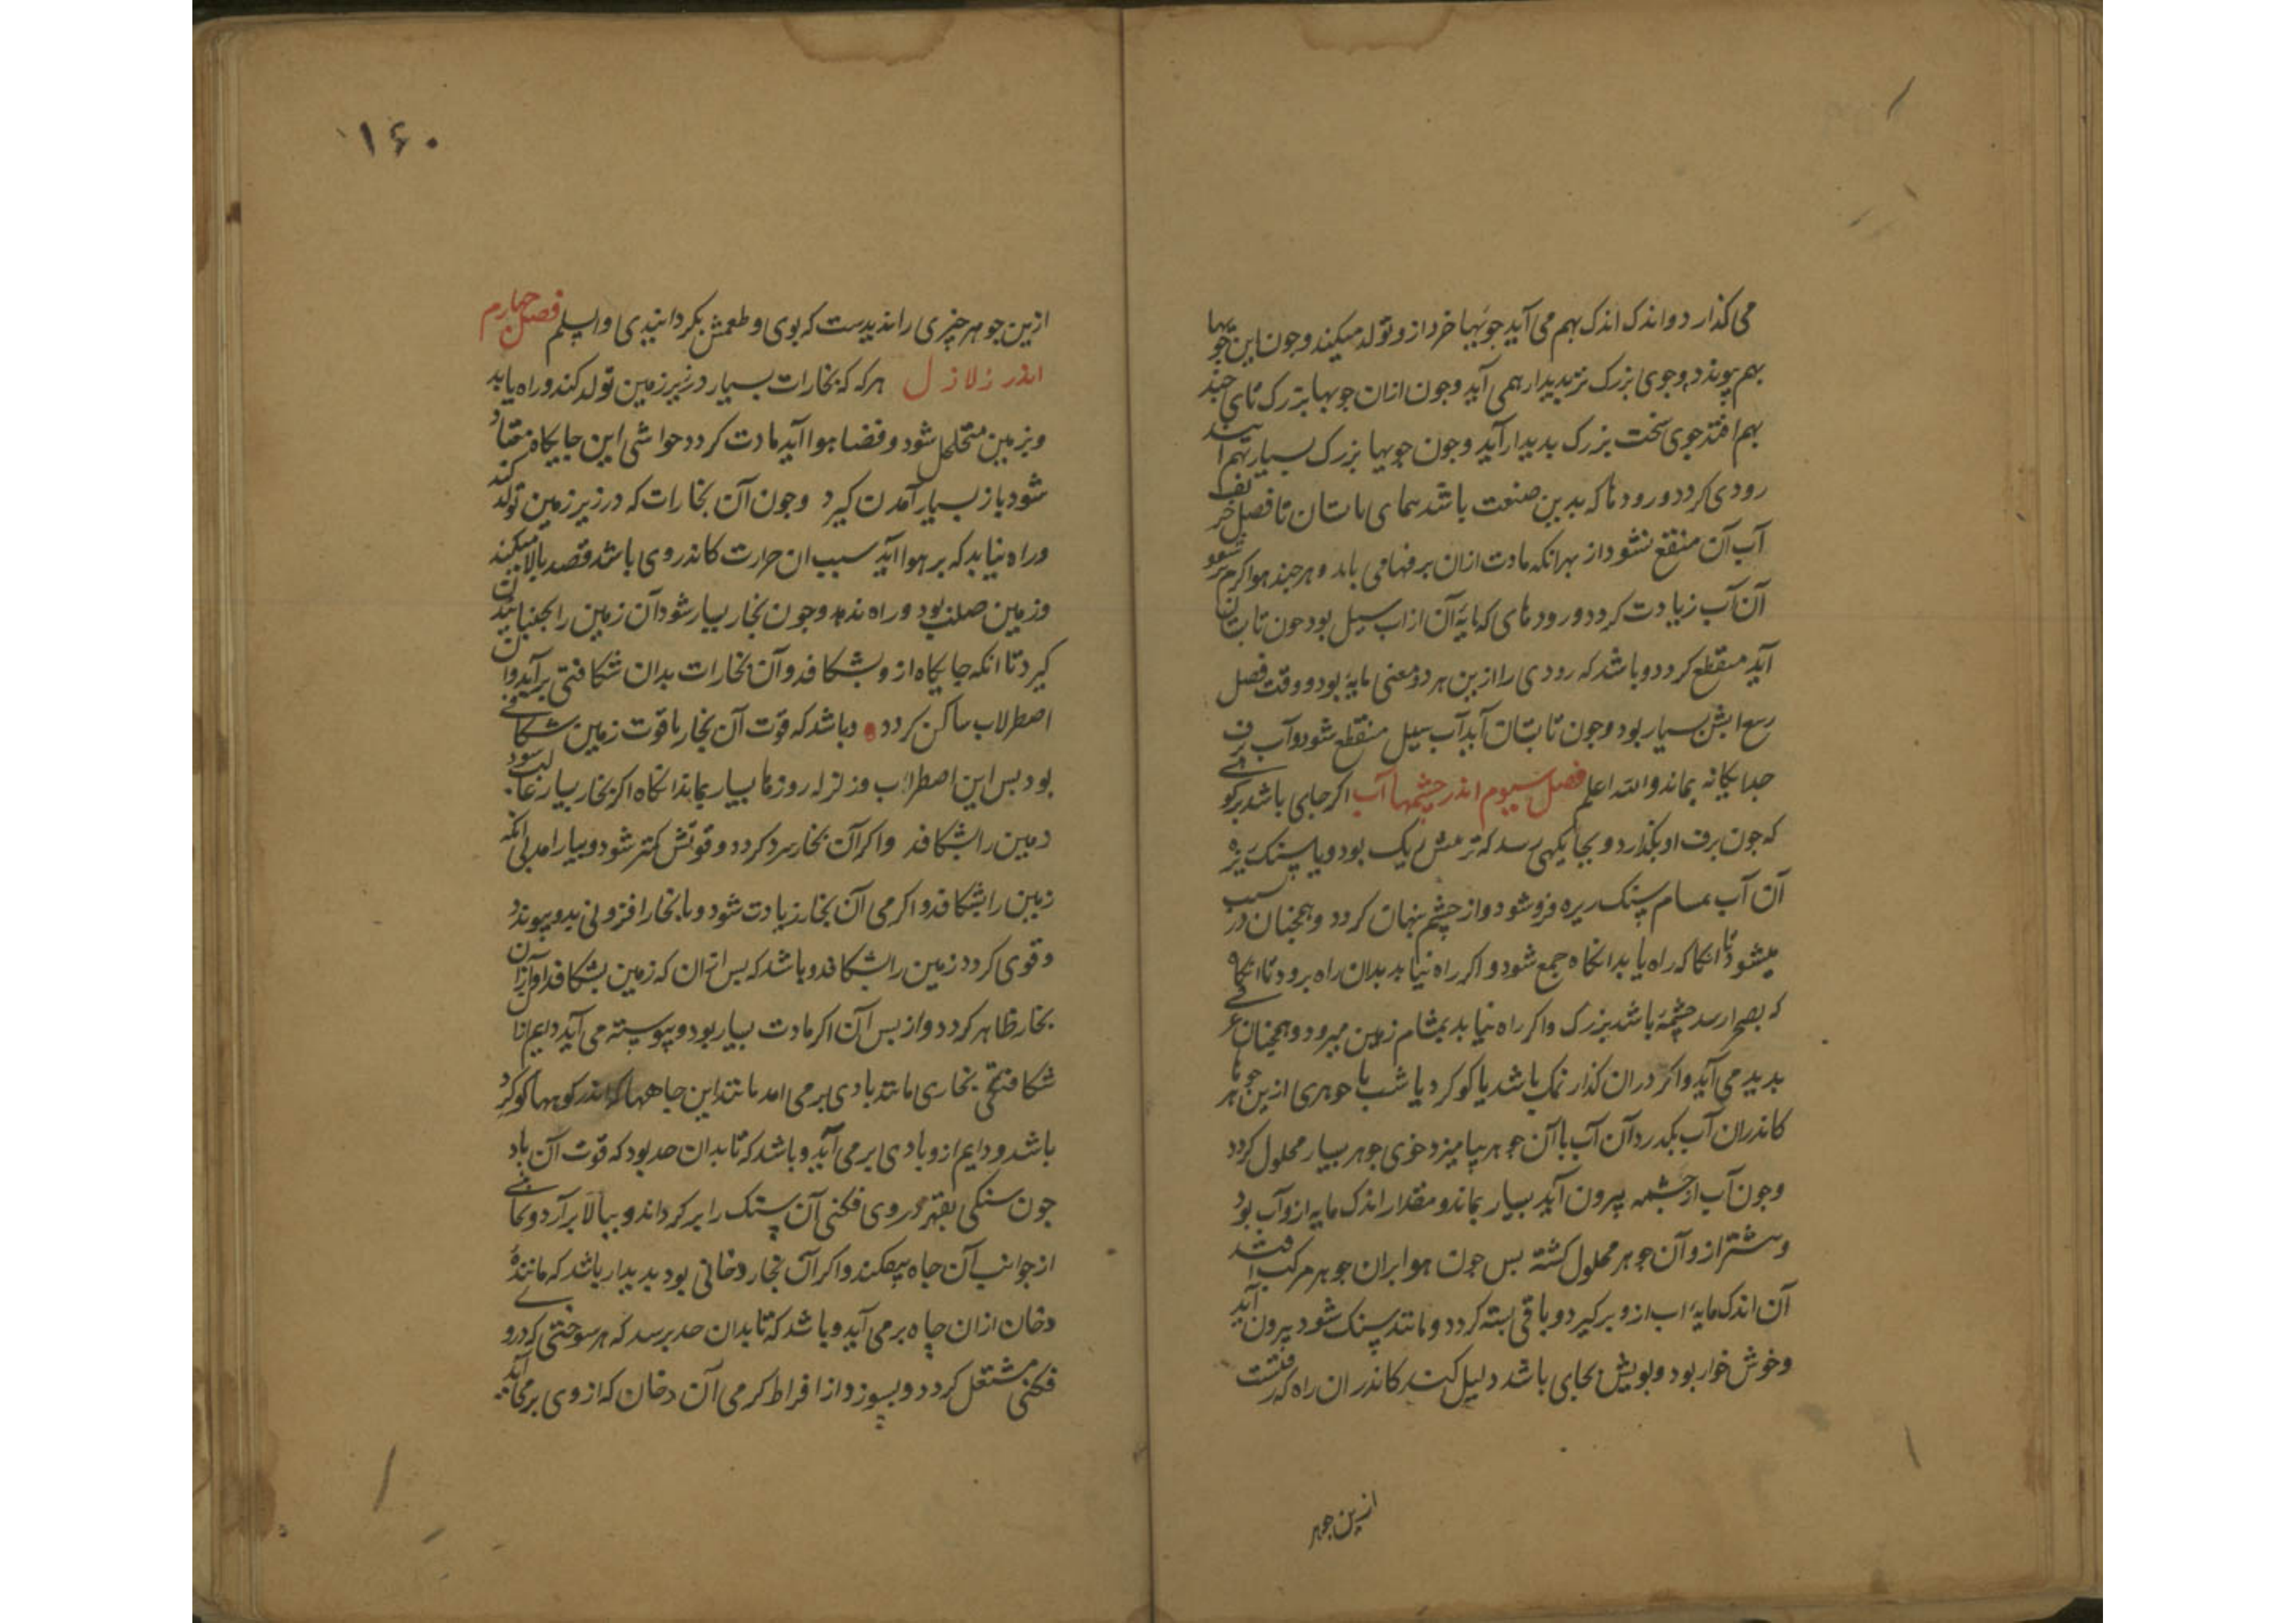 می کذارد و اندک اندک بهم می آید جویها خرد ازو تولد میکند و جون این جویها
بهم پیوندد و جوی بزرک تر بدیدار همی آید و جون ازان جویها بزرک تای چند
بهم افتد جوی سخت بزرک بدیدار آید و جون جویها بزرک بسیار بهم آیند
رودی کردد و رودها که بدین صنعت باشد تا فصل خریف
آب آن منقع نشود از بهر انکه مادت ازان برفها می یابد و هر چند هوا کرمتر شود
آن آب زیادت کردد و رودهای که مایهٔ آن از اب سیل بود جون تابستان
آید منقطع کردد و باشد که رودی را ازین هر دو معنی مایه بود و وقت فصل
ربیع ابش بسیار بود و جون تابستان آید آب سیل منقطع شود و آب برف
جدایکانه بماند والله اعلم فصل سیوم اندر چشمها آب اکر جای باشد بر کوهی
که جون برف او بکذارد و بجایکهی رسد که ترمش ریک بود و یا سنک ریزه
آن آب بمسام سنک ریزه فرو شود و از چشم پنهان کردد و همچنان در سبب
میشود تا انکا که راه یابد انکاه جمع شود و اکر راه نیابد بدان راه برود تا انکاه
که بصحرا رسد چشمهٔ باشد بزرک و اکر راه نیابد بمشام زمین میرود و همچنان
بدید می آید و اکر دران کذار نمک باشد یا کوکرد یا شب یا جوهری ازین جوهرها
کاندران آب بکدرد آن آب با آن جوهر بیامیزد خوی جوهر بسیار محلول کردد
و جون آب از چشمه بیرون آید بسیار بماند و مقدار اندک مایه ازو آب بود
و بیشتر ازو آن جوهر محلول کشته بس جون هوا بران جوهر مرکب افتد
آن اندک مایهٔ اب ازو برکیرد و باقی بسته کردد و مانند سنک شود بیرون آید
و خوش خوار بود و بویش بجای باشد دلیل کند کاندران راه که کذشت
ازین جوهر
۱۶۰
ازین جوهر چیزی را ندیدست که بوی و طعمش بکردانیدی والسلم فصل چهارم
اندر زلازل هر که که بخارات بسیار در زیر زمین تولد کند و راه یابد
و بزمین متخلخل شود و فضا هوا آید مادت کردد حواشی این جایکاه
شود باز بسیار آمدن کیرد و جون آن بخارات که در زیر زمین تولد کند
و راه نیابد که بر هوا آید سبب ان حرارت کاندر وی باشد قصد بالا میکند
و زمین صلب بود و راه ندهد و جون بخار بسیار شود آن زمین را جنبانیدن
کیرد تا انکه جایکاه ازو بشکافد و آن بخارات بدان شکافتی برآید و ان
اصطراب ساکن کردد و باشد که قوت آن بخار با قوت زمین شکافی
بود بس این اصطراب و زلزله روزها بسیار بماند انکاه اکر بخار بسیار غالب شود
زمین را بشکافد و اکر آن بخار سرد کردد و قوتش کمتر شود و بیارامد بی انکه
زمین را بشکافد و اکر می آن بخار زیادت شود و یا بخار افزونی بدو پیوندد
و قوی کردد زمین را بشکافد و باشد که بس ازان که زمین بشکافد آواز آن
بخار ظاهر کردد و از بس آن اکر مادت بسیار بود و پیوسته می آید دایم ازان
شکافتکی بخاری مانند بادی برمی امد مانند این جاهها که اندر کوهها کوکرد
باشد و دایم ازو بادی برمی آید و باشد که تا بدان حد بود که قوت آن باد
جون سنکی بقهر در وی فکنی آن سنک را برکرداند و ببالا برآرد و بجانبی
از جوانب آن جاه بیفکند و اکر آن بخار دخانی بود بدیدار باشد که مانندهٔ
دخان ازان چاه برمی آید و باشد که تا بدان حد برسد که هر سوختنی که درو
فکنی مشتعل کردد و بسوزد از افراط کرمی آن دخان که از وی برمی آید